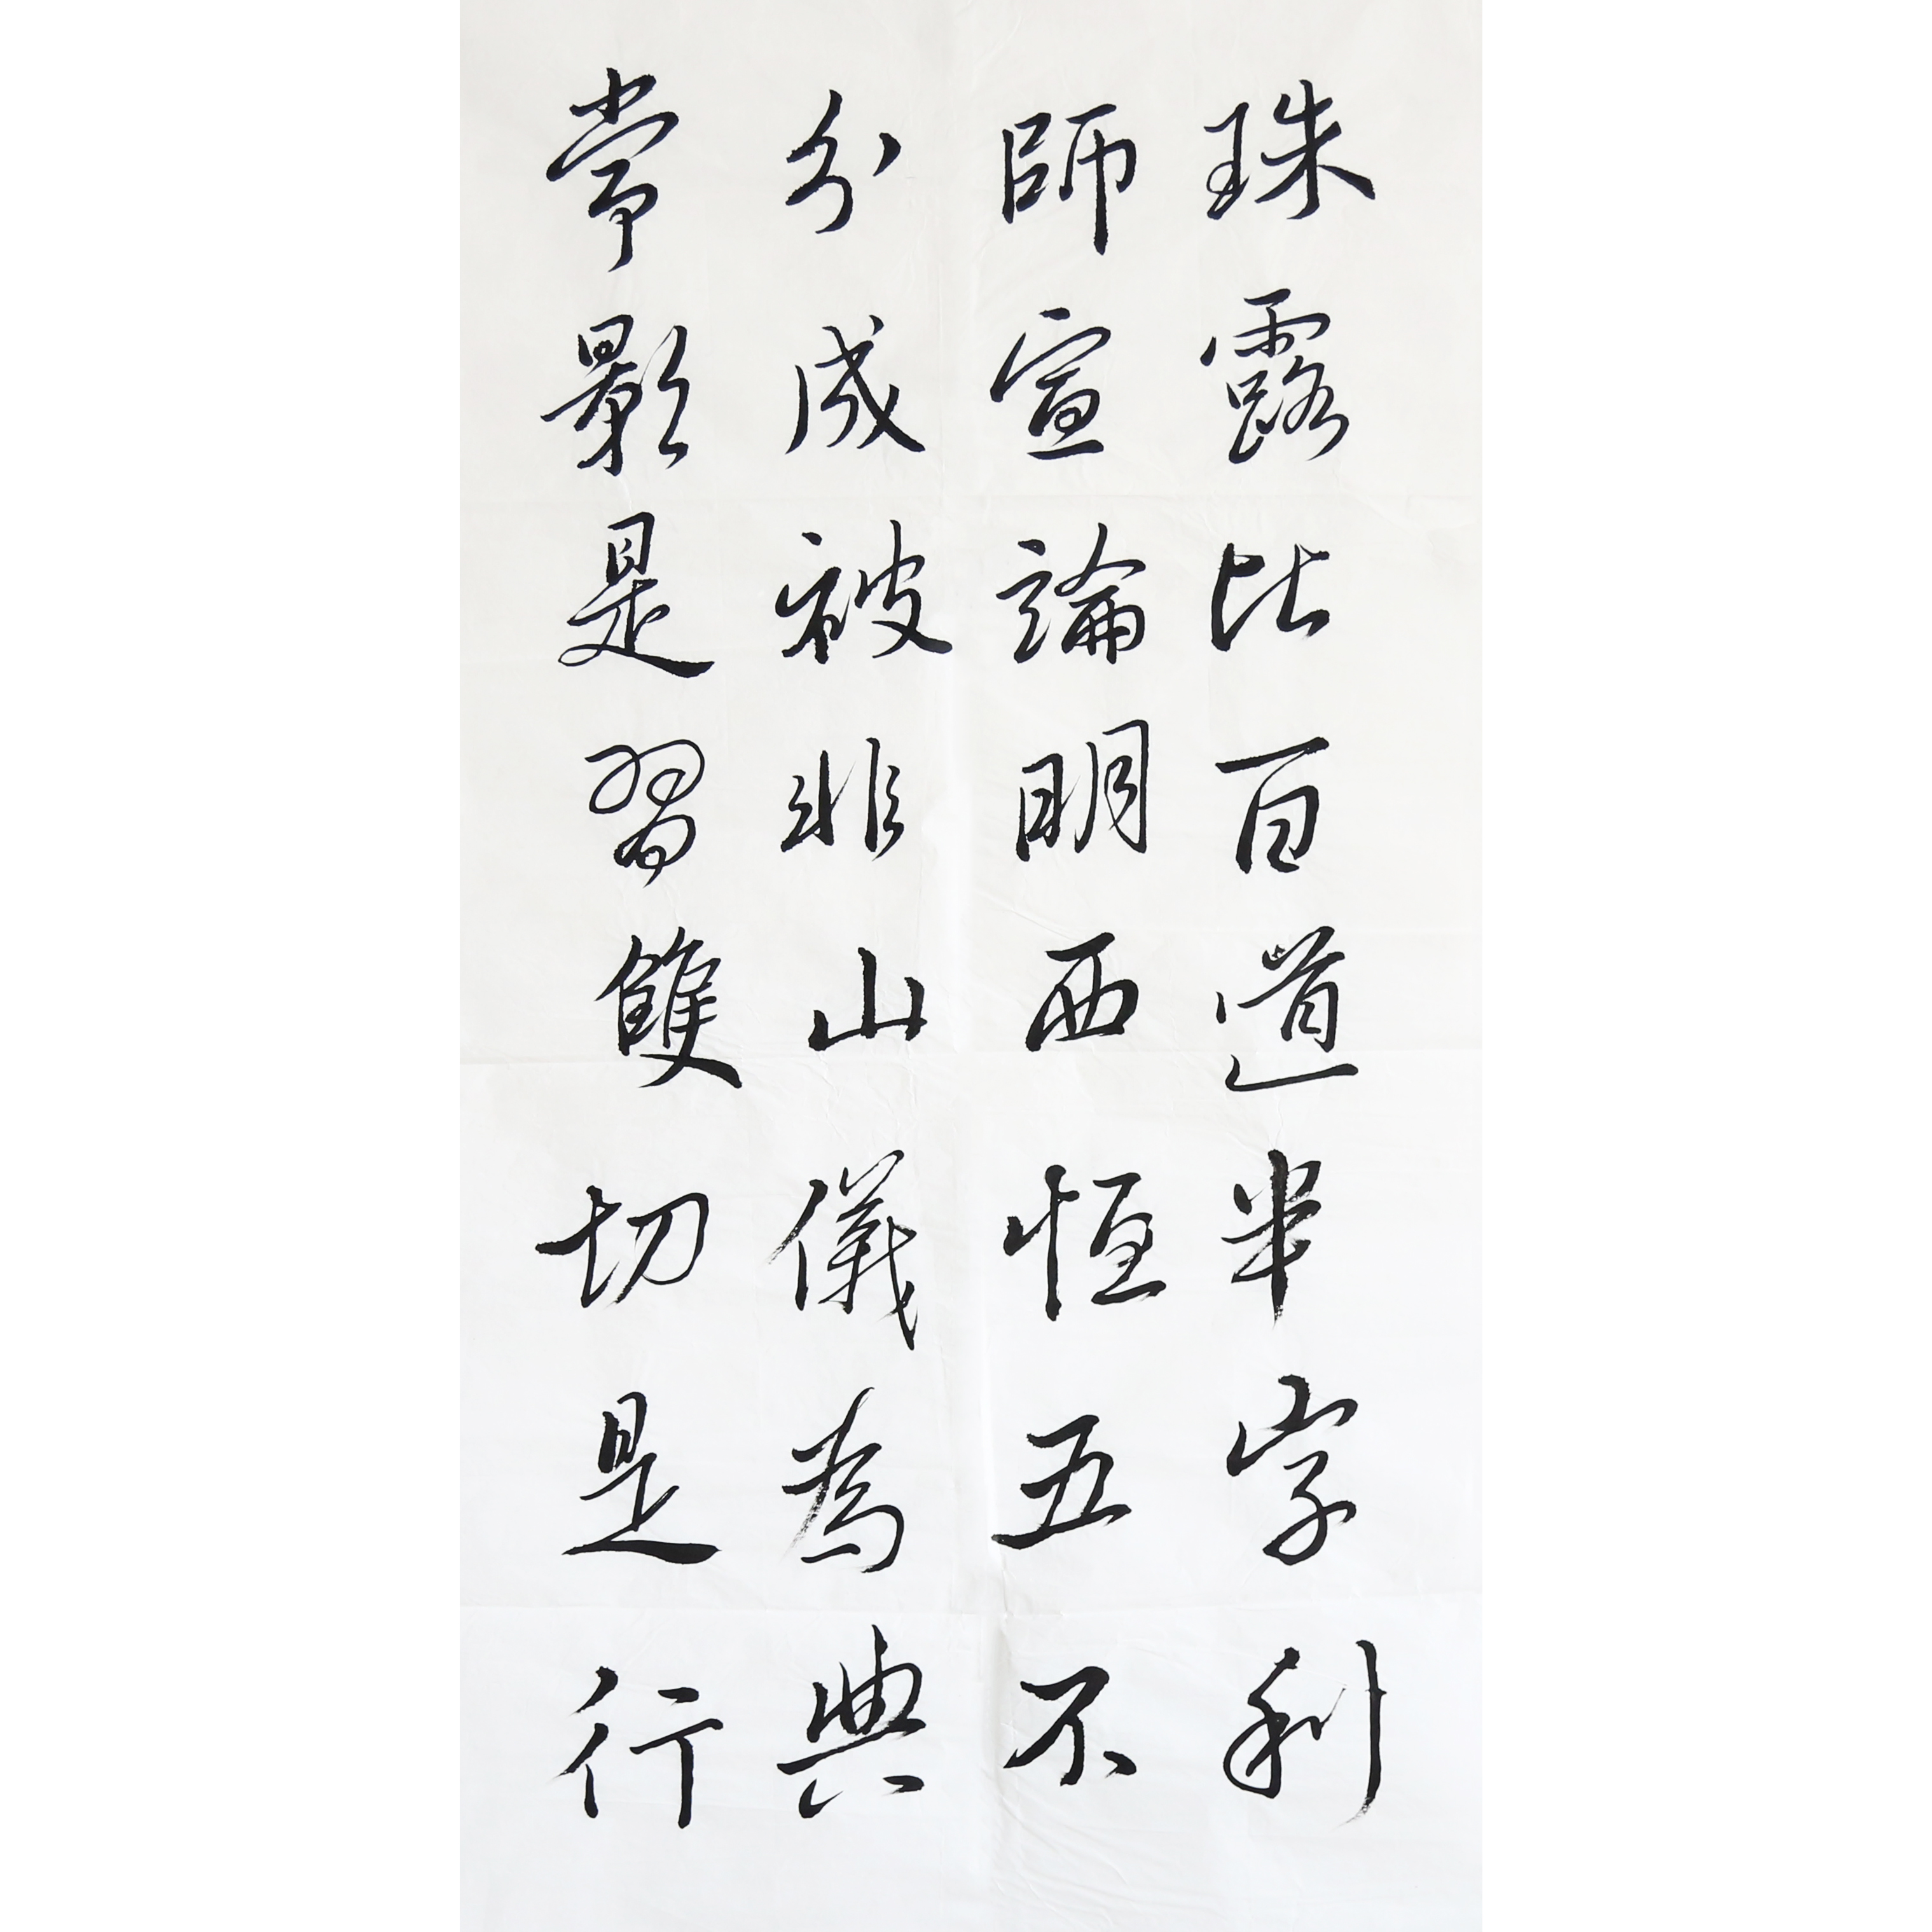 珠露比百道半字利
師宣論明西恒五不
分成被非山儀為典
常影是習雙切是行